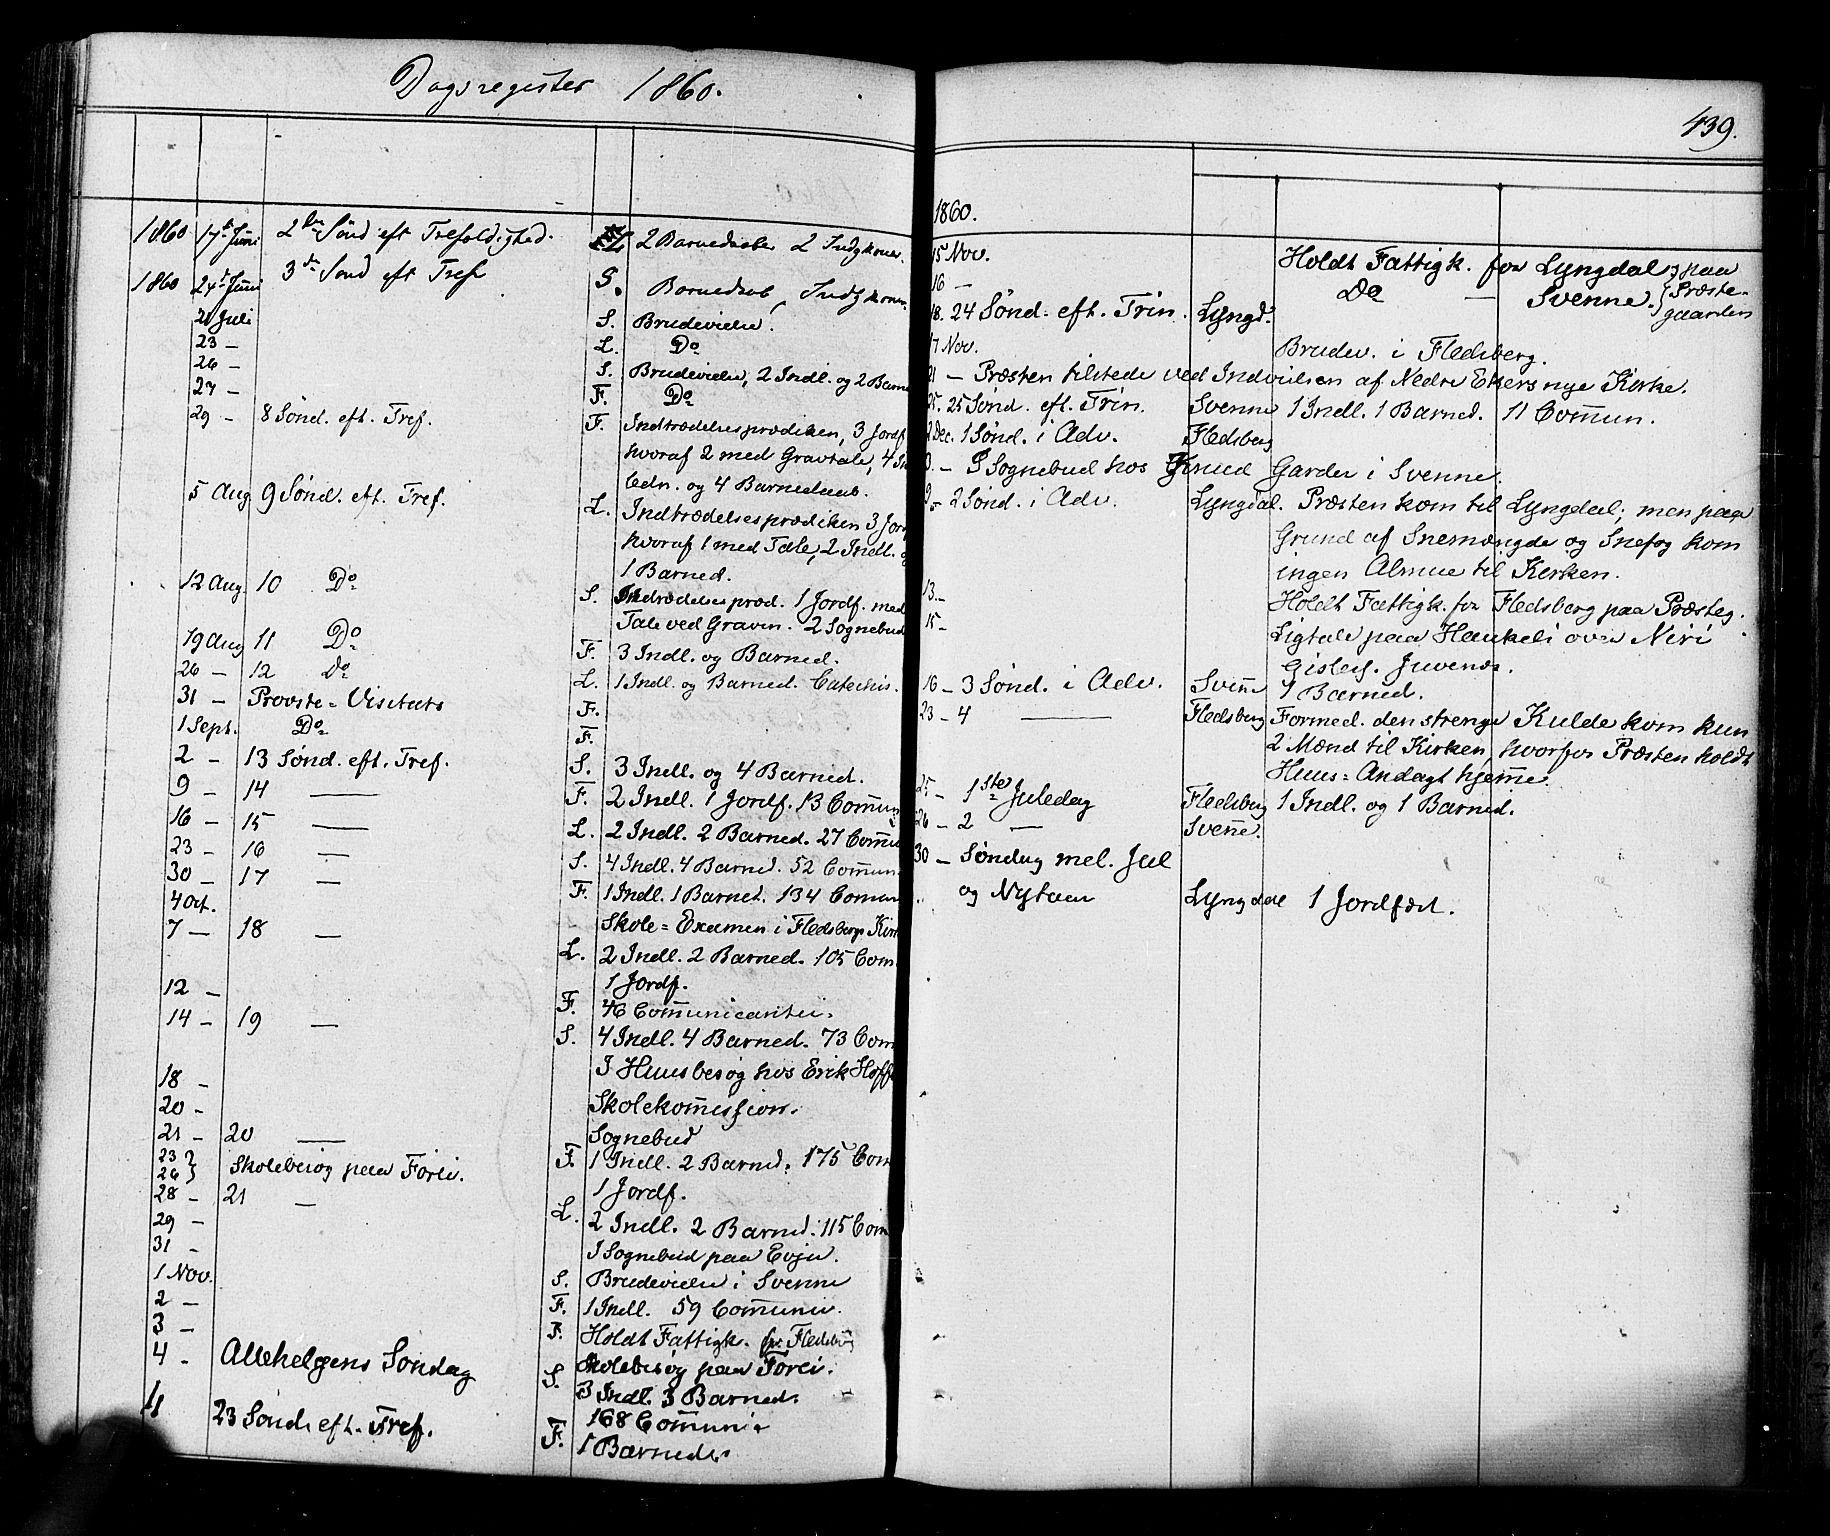 Dagsregister 1860.
1860 17de Juni 2den Sønd eft Trefoldighed. L 2 Barnedaab 2 Indgkoner.
1860 24de Juni 3de Sønd eft Tref S. Barnedaab, Indgkoner
21 Juli S. Brudevielse.
23 — L. Do
26 — S. Brudevielse, 2 Indl. og 2 Barne
27 — F. Do
29 — 8 Sønd. eft. Tref. F. Indtrædelsesprædiken, 3 Jordf.
hvoraf 2 med Gravtale, 4 In
ledn. og 4 Barnedaab.
5 Aug 9 Sønd. eft. Tref. L. Indtrædelsesprædiken 3 Jord
hvoraf 1 med Tale, 2 Indl. og
1 Barned.
12 Aug. 10 Do S. Indtrædelsespræd. 1 Jordf. med
Tale ved Graven. 2 Sognebud
19 Aug 11 Do F. 3 Indl. og Barned.
26 — 12 Do L. 1 Indl. og Barned. Catechis.
31 — Provste=Visitats F.
1 Sept. Do F.
2 — 13 Sønd. eft. Tref. S. 3 Indl. og 4 Barned.
9 — 14 — F. 2 Indl. 1 Jordf. 13 Commun
16 — 15 — L. 2 Indl. 2 Barned. 27 Commu
23 — 16 — S. 4 Indl. 4 Barned. 52 Commun.
30 — 17 — F. 1 Indl. 1 Barned. 134 Commun
4 Oct. Skole=Examen i Flesbergs Kirk
7 — 18 — L. 2 Indl. 2 Barned. 105 Com
1 Jordf.
12 — F. 46 Communicanter.
14 — 19 — S. 4 Indl. 4 Barned. 73 Com
18 — I Huusbesøg hos Erik Hoff
20 — Skolekommission.
Sognebud
21 — 20 — F. 1 Indl. 2 Barned. 175 Com
1 Jordf.
23 } 26 } Skolebesøg paa Forei.
28 — 21 — L. 2 Indl. 2 Barned. 115 Com
29 — I Sognebud paa Evju.
31 — S. Brudevielse i Svenne
1 Nov. F. 1 Indl. 59 Communic.
2 — F. Holdt Fattigk. for Flesberg
3 — Skolebesøg paa Forei.
4 - Allehelgens Søndag S. 3 Indl. 3 Barned.
168 Communic
11 23 Sønd. eft. Tref. F. 1 Barned.
439.
1860.
15 Nov. Holdt Fattigk. for Lyngdal } paa
16 — Do — Svenne. } Præste-
gaarden
18. 24 Sønd. eft. Trin. Lyngd.
17 Nov. Brudev. i Flesberg.
21 — Præsten tilstede ved Indvielsen af Nedre Ekers nye Kirke.
25. 25 Sønd. eft. Trin. Svenne 1 Indl. 1 Barned. 11 Commun.
2 Dec. 1 Sønd. i Adv. Flesberg
— I Sognebud hos Knud Garder i Svenne.
9 — 2 Sønd. i Adv. Lyngdal. Præsten kom til Lyngdal; men paa
Grund af Snemængde og Snefog kom
ingen Almue til Kirken.
13.— Holdt Fattigk. for Flesberg paa Præsteg.
15— Ligtale paa Haukeli over Niri
Gislesf. Juvenæs.
16 — 3 Sønd. i Adv. Svenne 1 Barned.
23 — 4 — Flesberg Formed. den strenge Kulde kom kun
2 Mænd til Kirken, hvorfor Præsten holdt
Huus=Andagt hjemme.
25 — 1ste Juledag Flesberg 1 Indl. og 1 Barned.
26 — 2 — Svenne.
30 — Søndag mel. Jul
og Nytaar Lyngdal 1 Jordfæst.